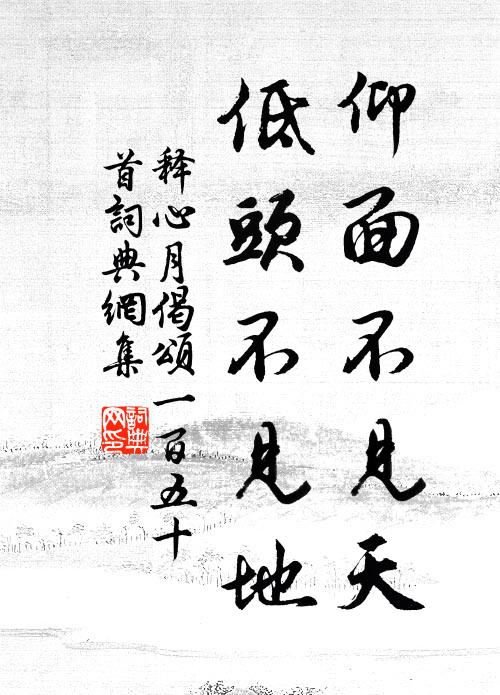 仰面不見天
低頭不見地
释心月偈頌一百五十
首詞典網集
詞典
网印